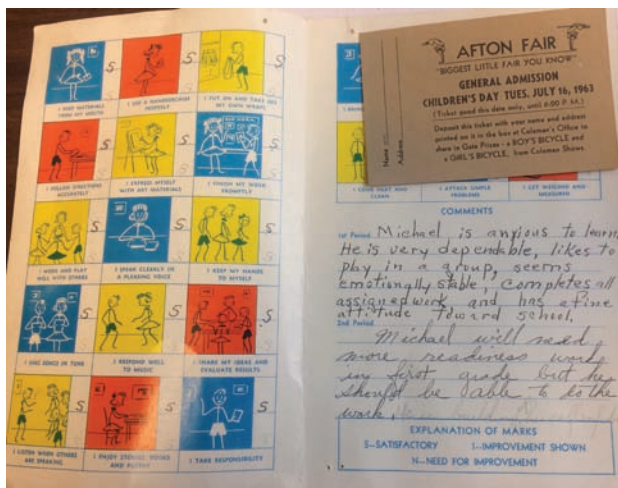 S S S
I KEEP MATERIALS FROM MY MOUTH
I USE A HANDKERCHIEF PROPERLY
I PUT ON AND TAKE OFF MY OWN WRAPS
S S S
I FOLLOW DIRECTIONS ACCURATELY
I EXPRESS MYSELF WITH ART MATERIALS
I FINISH MY WORK PROMPTLY
S S S
I WORK AND PLAY WELL WITH OTHERS
I SPEAK CLEARLY IN A PLEASING VOICE
I KEEP MY HANDS TO MYSELF
S S S
I SING SONGS IN TUNE
I RESPOND WELL TO MUSIC
I SHARE MY IDEAS AND EVALUATE RESULTS
S S S
I LISTEN WHEN OTHERS ARE SPEAKING
I ENJOY STORIES, POEMS AND
I TAKE RESPONSIBILITY
AFTON FAIR
"BIGGEST LITTLE FAIR YOU KNOW"
GENERAL ADMISSION
CHILDREN'S DAY TUES. JULY 16, 1963
(Ticket good this date only, until 6:00 P. M.)
Deposit this ticket with your name and address
printed on it in the box at Coleman's Office to
share in Gate Prizes - a BOY'S BICYCLE and
a GIRL'S BICYCLE, from Coleman Shows.
Name
Address
I COME NEAT AND CLEAN
I ATTACK SIMPLE PROBLEMS
I GET WEIGHED AND MEASURED
COMMENTS
1st Period Michael is anxious to learn.
He is very dependable, likes to
play in a group, seems
emotionally stable, completes all
assigned work, and has a fine
attitude toward school.
2nd Period
Michael will need
more readiness work
in first grade but he
should be able to do the
work.
EXPLANATION OF MARKS
S—SATISFACTORY I—IMPROVEMENT SHOWN
N—NEED FOR IMPROVEMENT